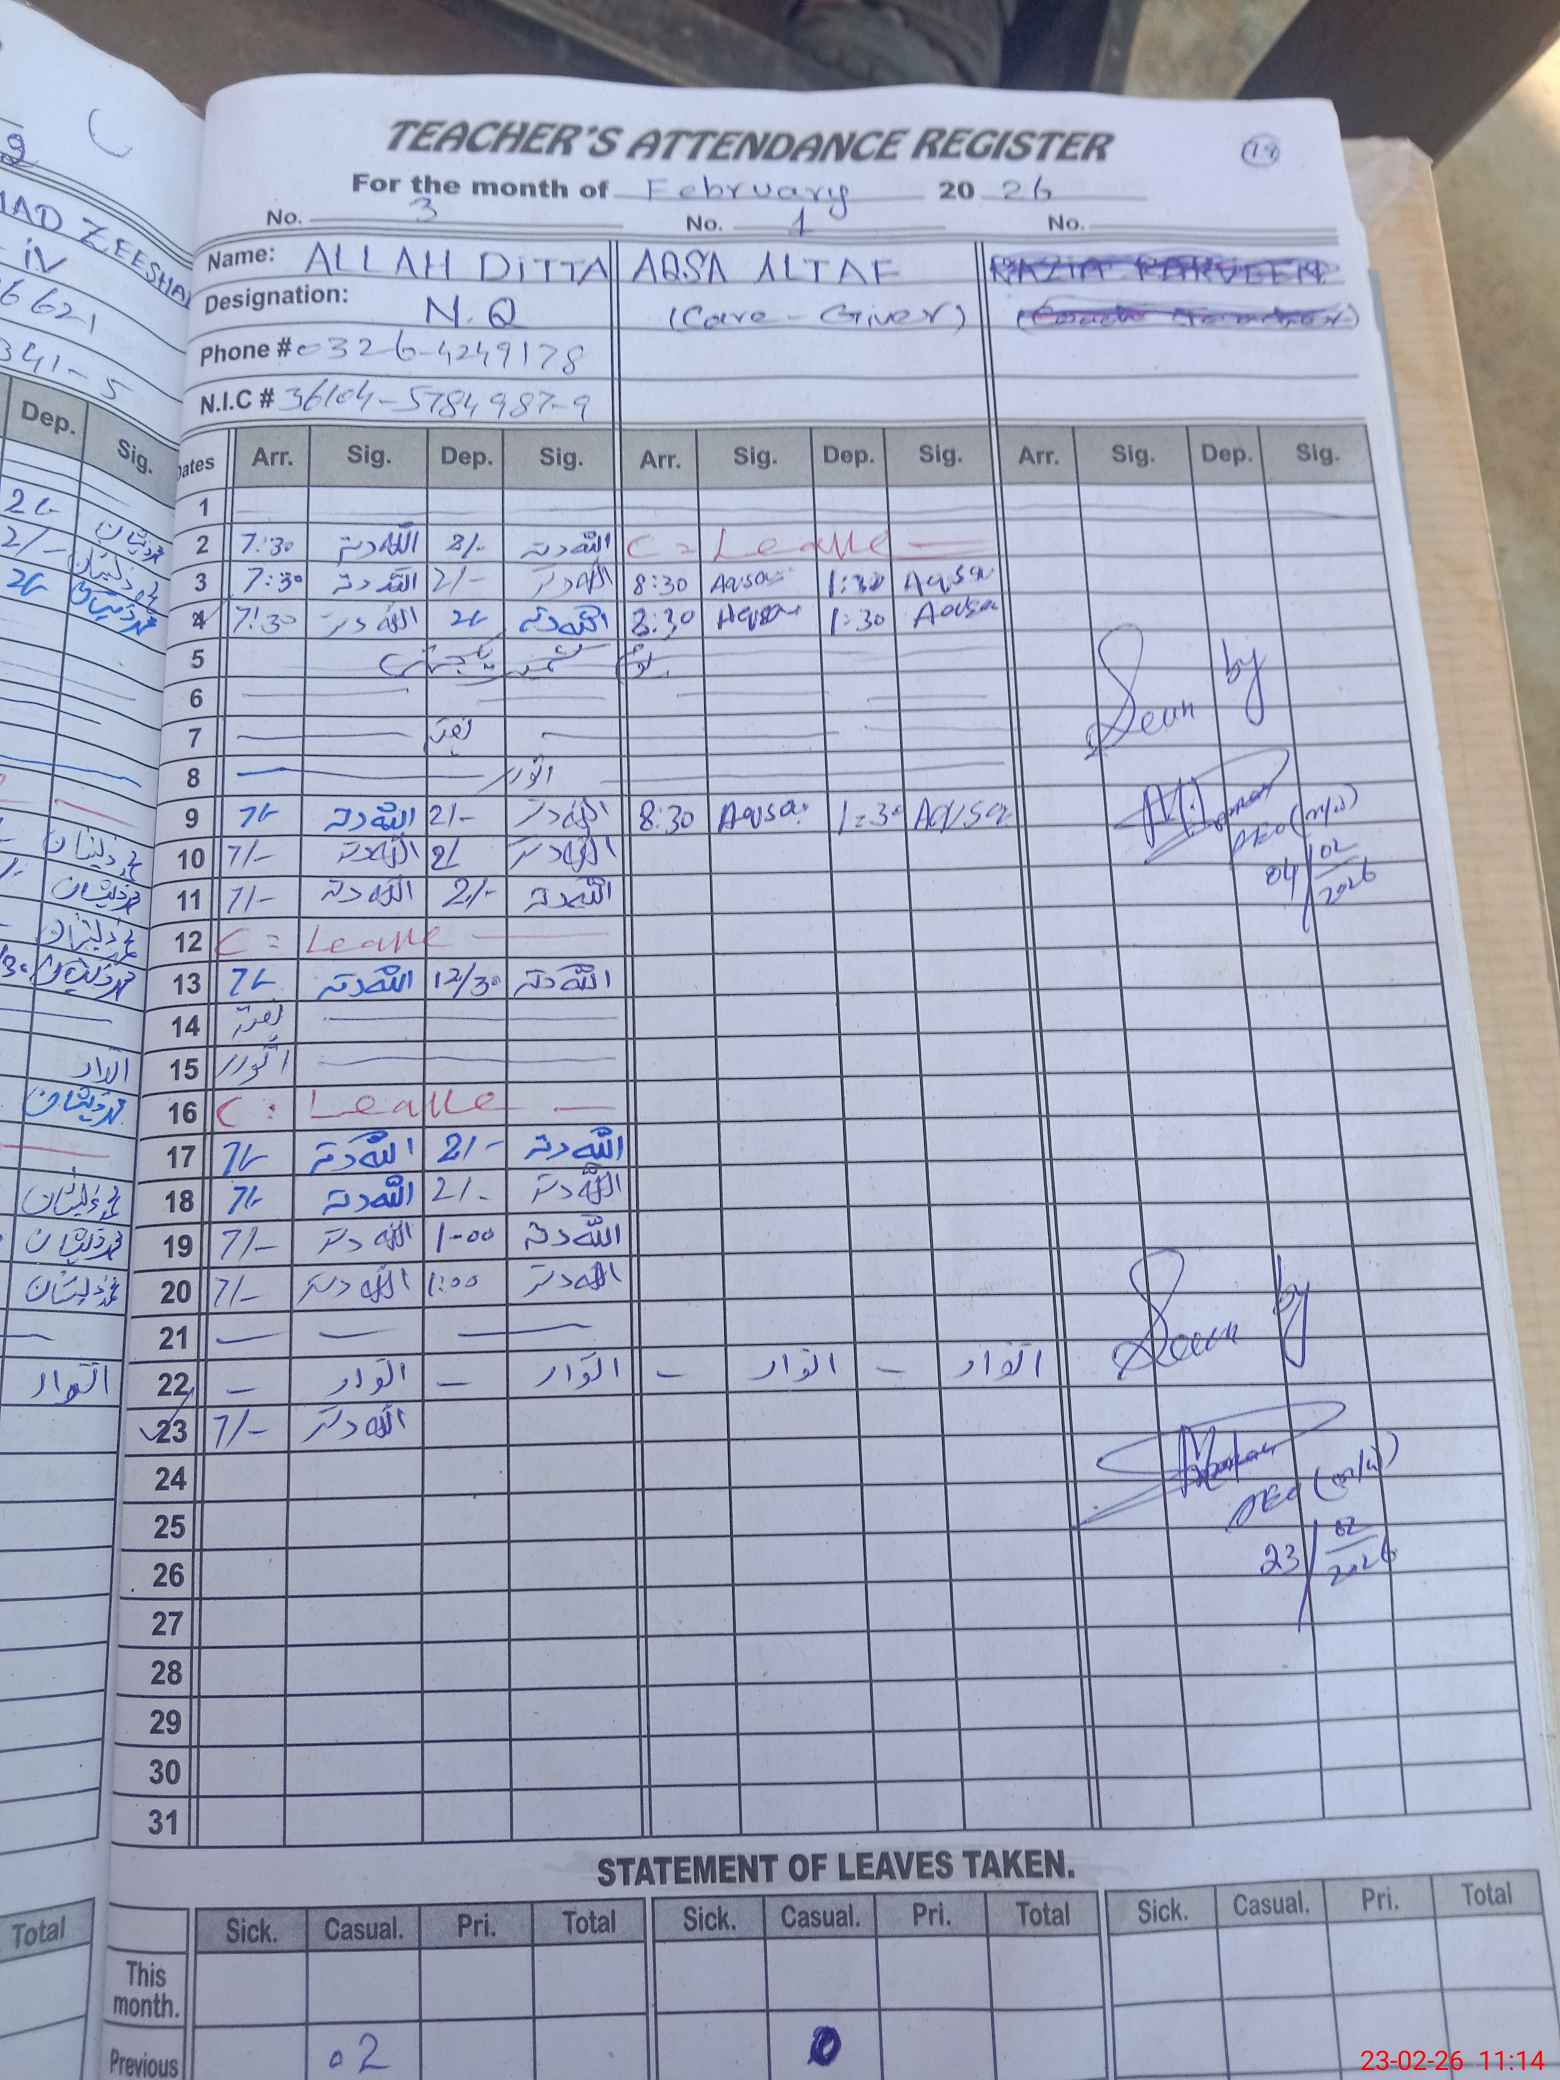 TEACHER'S ATTENDANCE REGISTER
19
For the month of February 2026
No. 3 No. 1 No.
Name: ALLAH DITTA AQSA ALTAF
Designation: N.Q (Care-Giver)
Phone # 0326-4249178
N.I.C # 36104-5784987-9
Dates Arr. Sig. Dep. Sig. Arr. Sig. Dep. Sig. Arr. Sig. Dep. Sig.
1
2 7:30 اللہ دتہ 2/- اللہ دتہ C = Leave
3 7:30 اللہ دتہ 2/- اللہ دتہ 8:30 Aqsa 1:30 Aqsa
4 7:30 اللہ دتہ 2/- اللہ دتہ 8:30 Aqsa 1:30 Aqsa
5 یوم کشمیر یکجہتی
6
7 ہفتہ
8 اتوار
9 7/- اللہ دتہ 2/- اللہ دتہ 8:30 Aqsa 1:30 Aqsa
10 7/- اللہ دتہ 2/ اللہ دتہ
11 7/- اللہ دتہ 2/- اللہ دتہ
12 C = Leave
13 7/- اللہ دتہ 12/30 اللہ دتہ
14 ہفتہ
15 اتوار
16 C: Leave
17 7/- اللہ دتہ 2/- اللہ دتہ
18 7/- اللہ دتہ 2/- اللہ دتہ
19 7/- اللہ دتہ 1-00 اللہ دتہ
20 7/- اللہ دتہ 1:00 اللہ دتہ
21
22 - اتوار - اتوار - اتوار - اتوار
23 7/- اللہ دتہ
24
25
26
27
28
29
30
31
Seen by
AEO (m/w)
04/02/2026
Seen by
AEO (m/w)
23/02/2026
STATEMENT OF LEAVES TAKEN.
Sick. Casual. Pri. Total Sick. Casual. Pri. Total Sick. Casual. Pri. Total
This month.
Previous 02 0
ZEESHAN
iV
6621
341-5
Dep. Sig.
2/- محمد ذیشان
2/- محمد ذیشان
2/- محمد ذیشان
محمد ذیشان
محمد ذیشان
محمد ذیشان
محمد ذیشان
اتوار
محمد ذیشان
محمد ذیشان
محمد ذیشان
محمد ذیشان
اتوار
Total
23-02-26 11:14